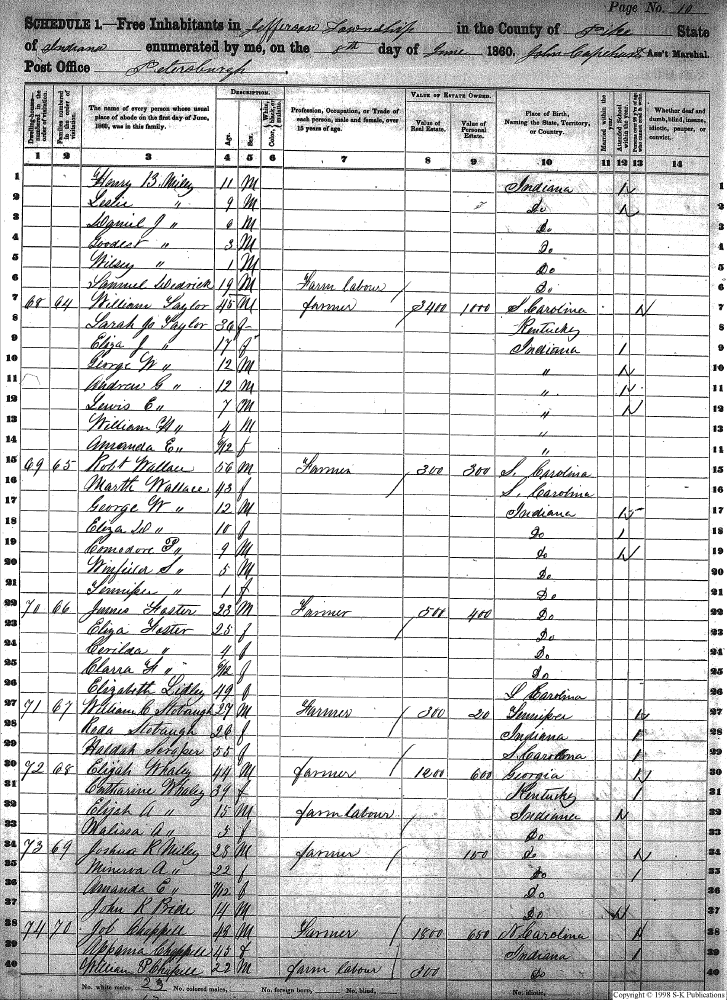 Page No. 10
SCHEDULE 1.—Free Inhabitants in Jefferson Township in the County of Pike State
of Indiana enumerated by me, on the 8th day of June 1860. John Capehart, Ass't Marshal.
Post Office Petersburgh
DESCRIPTION. VALUE OF ESTATE OWNED.
Dwelling-houses numbered in the order of visitation. Families numbered in the order of visitation. The name of every person whose usual place of abode on the first day of June, 1860, was in this family. Age. Sex. Color, White, black, or mulatto. Profession, Occupation, or Trade of each person, male and female, over 15 years of age. Value of Real Estate. Value of Personal Estate. Place of Birth, Naming the State, Territory, or Country. Married within the year. Attended School within the year. Persons over 20 y'rs of age who cannot read & write. Whether deaf and dumb, blind, insane, idiotic, pauper, or convict.
1 2 3 4 5 6 7 8 9 10 11 12 13 14
1 Henry B. Miley 11 M Indiana 1 1
2 Leslie " 9 M Do 1 2
3 Daniel J " 6 M Do 3
4 " 3 M Do 4
5 Wilsey " 1 M Do 5
6 Samuel Dedrick 19 M Farm labour Do 6
7 68 64 William Taylor 45 M farmer 3400 1000 S. Carolina 1 7
8 Sarah Taylor 30 f Kentucky 8
9 Eliza J " 17 f Indiana 1 9
10 George W " 12 M " 1 10
11 Andrew G " 12 M " 1 11
12 Lewis E " 7 M " 1 12
13 William H " 4 M " 13
14 Amanda E " f " 14
15 69 65 Robt Wallace 56 M Farmer 300 300 S. Carolina 15
16 Marth Wallace 43 f S. Carolina 16
17 George W " 12 M Indiana 1 17
18 Eliza D " 10 f Do 1 18
19 Comodore P " 9 M Do 1 19
20 Winfield S " 5 M Do 20
21 Jenniper " 1 f Do 21
22 70 66 James Foster 23 M Farmer 500 400 Do 22
23 Eliza Foster 25 f Do 23
24 Cerilda " 4 f Do 24
25 Clarra F " f Do 25
26 Elizabeth Lidley 49 f S Carolina 26
27 71 67 William C Stobaugh 27 M Farmer 300 20 1 27
28 Reda Stobaugh 26 f Indiana 1 28
29 Haldah Scroper 55 f S. Carolina 1 29
30 72 68 Elijah Whaley 44 M farmer 1200 600 Georgia 1 30
31 Catharine Whaley 39 f Kentucky 1 31
32 Elijah A " 15 M farm labour Indiana 1 32
33 Malissa A " 5 f Do 33
34 73 69 Joshua R Miley 23 M farmer 150 Do 1 34
35 Minerva A " 22 f Do 1 35
36 Amanda E " f Do 36
37 John R Bride 14 M Do 1 37
38 74 70 Job Chappell 48 M Farmer 1800 650 N. Carolina 1 38
39 Chappell 45 f Indiana 1 39
40 William P Chappell 22 M farm labour 500 Do 40
No. white males, 23 No. colored males, No. foreign born, No. blind, No. idiotic,
Copyright © 1998 S-K Publications